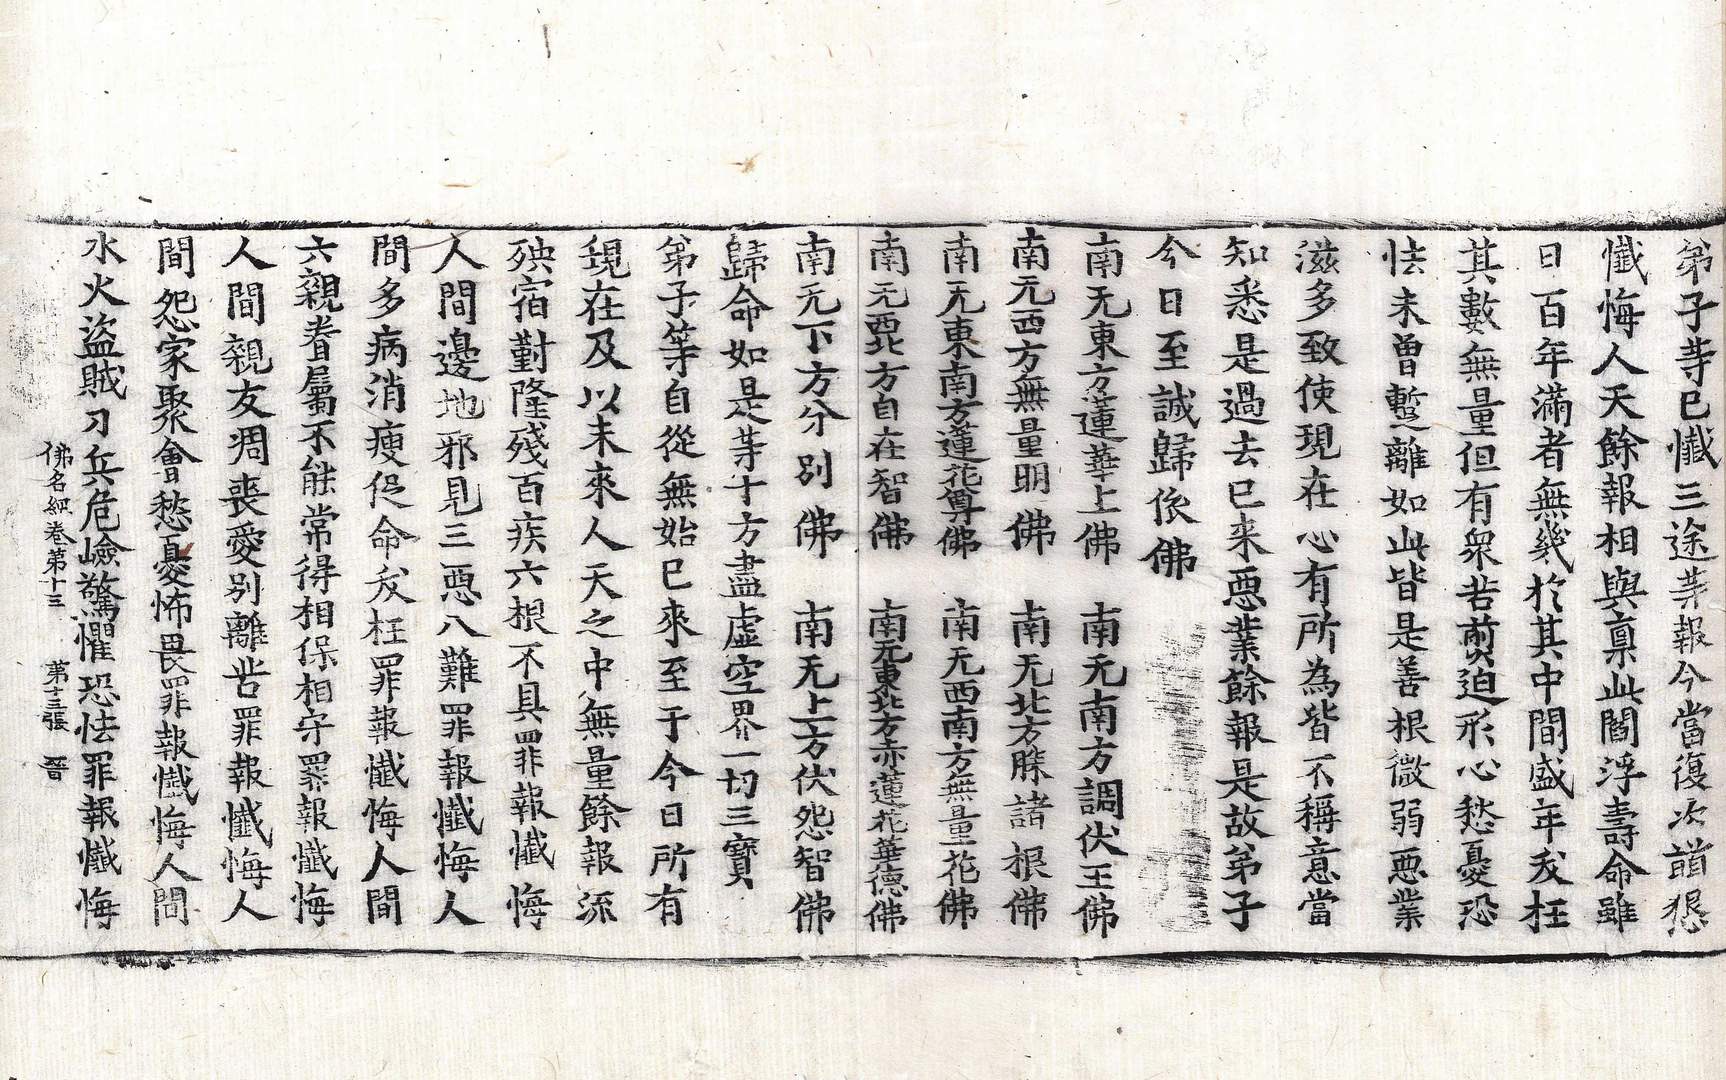 弟子等已懺三途等報今當復次䭫懇
懺悔人天餘報相與禀此閻浮壽命雖
日百年滿者無幾於其中間盛年夭枉
其數無量但有衆苦煎迫形心愁憂恐
怯未曾暫離如此皆是善根微弱惡業
滋多致使現在心有所為皆不稱意當
知悉是過去已来惡業餘報是故弟子
今日至誠歸依佛
南无東方蓮華上佛　南无南方調伏王佛
南无西方無量明佛　南无北方勝諸根佛
南无東南方蓮花尊佛　南无西南方無量花佛
南无西北方自在智佛　南无東北方赤蓮花華德佛
南无下方分別佛　南无上方伏怨智佛
歸命如是等十方盡虛空界一切三寶
弟子等自從無始已來至于今日所有
現在及以未來人天之中無量餘報流
殃宿對隆殘百疾六根不具罪報懺悔
人間邊地邪見三惡八難罪報懺悔人
間多病消瘦促命夭枉罪報懺悔人間
六親眷屬不能常得相保相守罪報懺悔
人間親友凋喪愛別離苦罪報懺悔人
間怨家聚會愁憂怖畏罪報懺悔人間
水火盜賊刀兵危嶮驚懼恐怯罪報懺悔
佛名經卷第十三　第十三張　晉